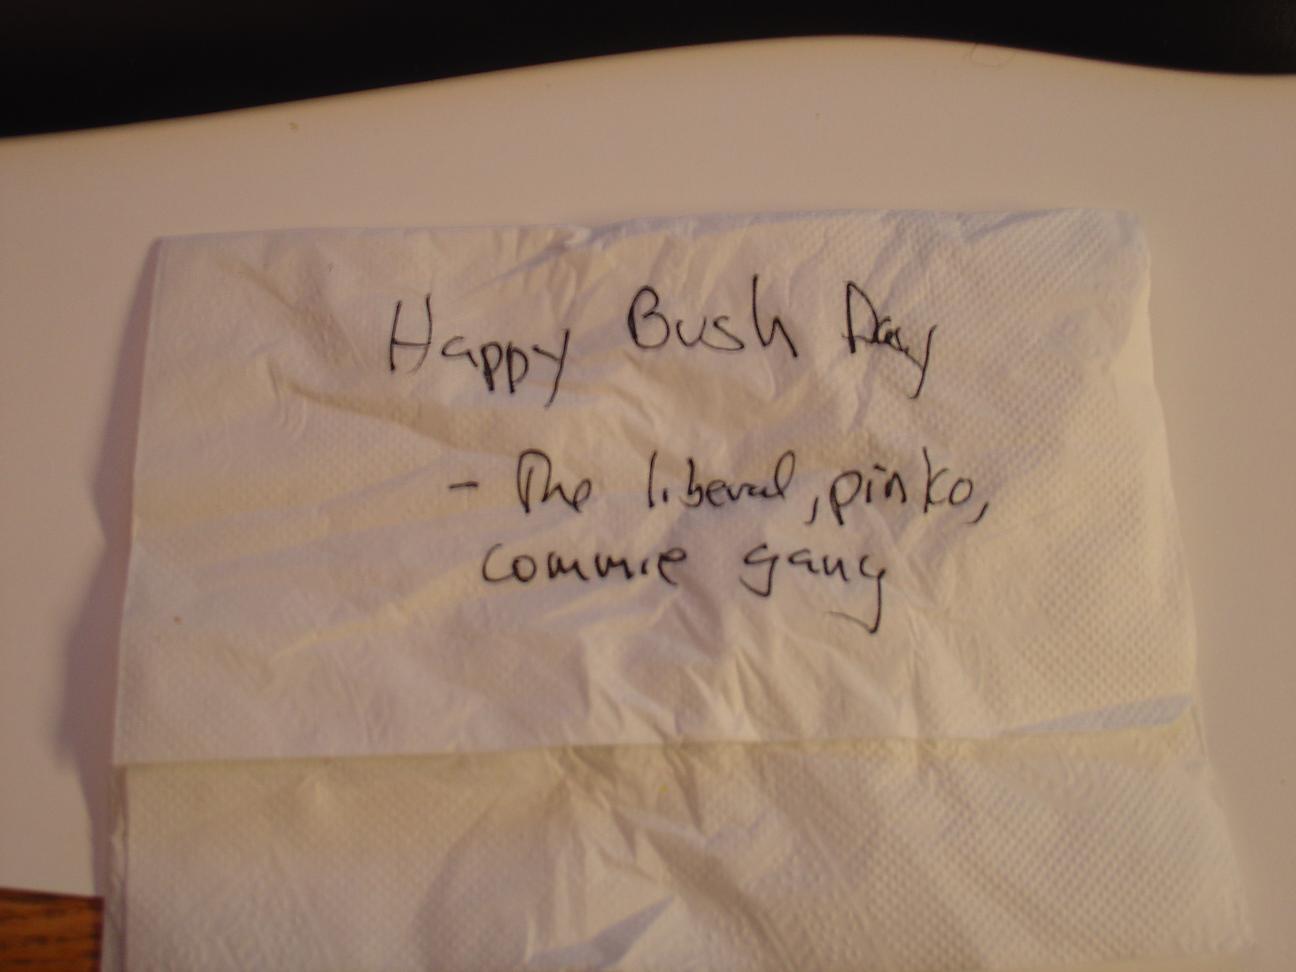 Happy Bush Day
- The liberal, pinko,
commie gang